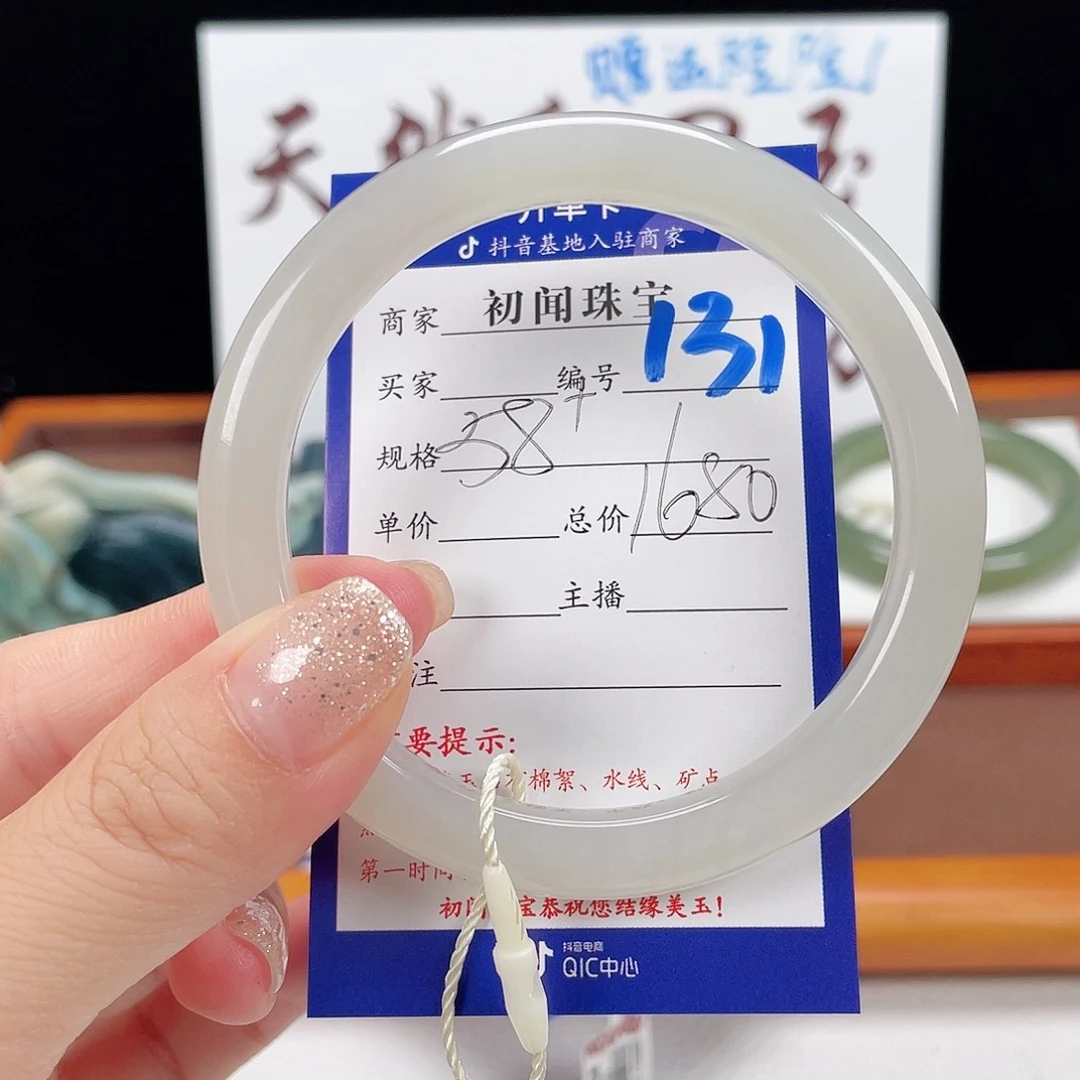 赠运险险！
天然
玉
开单卡
抖音基地入驻商家
商家 初闻珠宝
131
买家 编号
规格 58+
单价 总价 1680
主播
注
要提示:
棉絮、水线、矿点
第一时间
初闻 宝恭祝您结缘美玉!
抖音电商
QIC中心